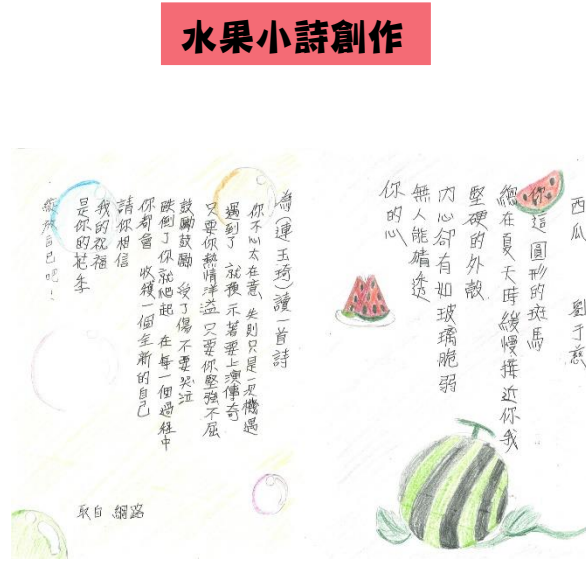 水果小詩創作
西瓜 劉于慈
你這圓形的斑馬
總在夏天時緩慢接近你我
堅硬的外敵
內心卻有如玻璃脆弱
無人能猜透
你的心
為(連玉琦)讀一首詩
你不必太在意 失則只是一次機遇
遇到了 就預示著要上演傳奇
只要你熱情洋溢 只要你堅強不屈
鼓勵鼓勵 受了傷不要哭泣
跌倒了你就爬起 在每一個過程中
你都會 收穫一個全新的自己
請你相信
我的祝福
是你的花季
自己吧！
取自 網路